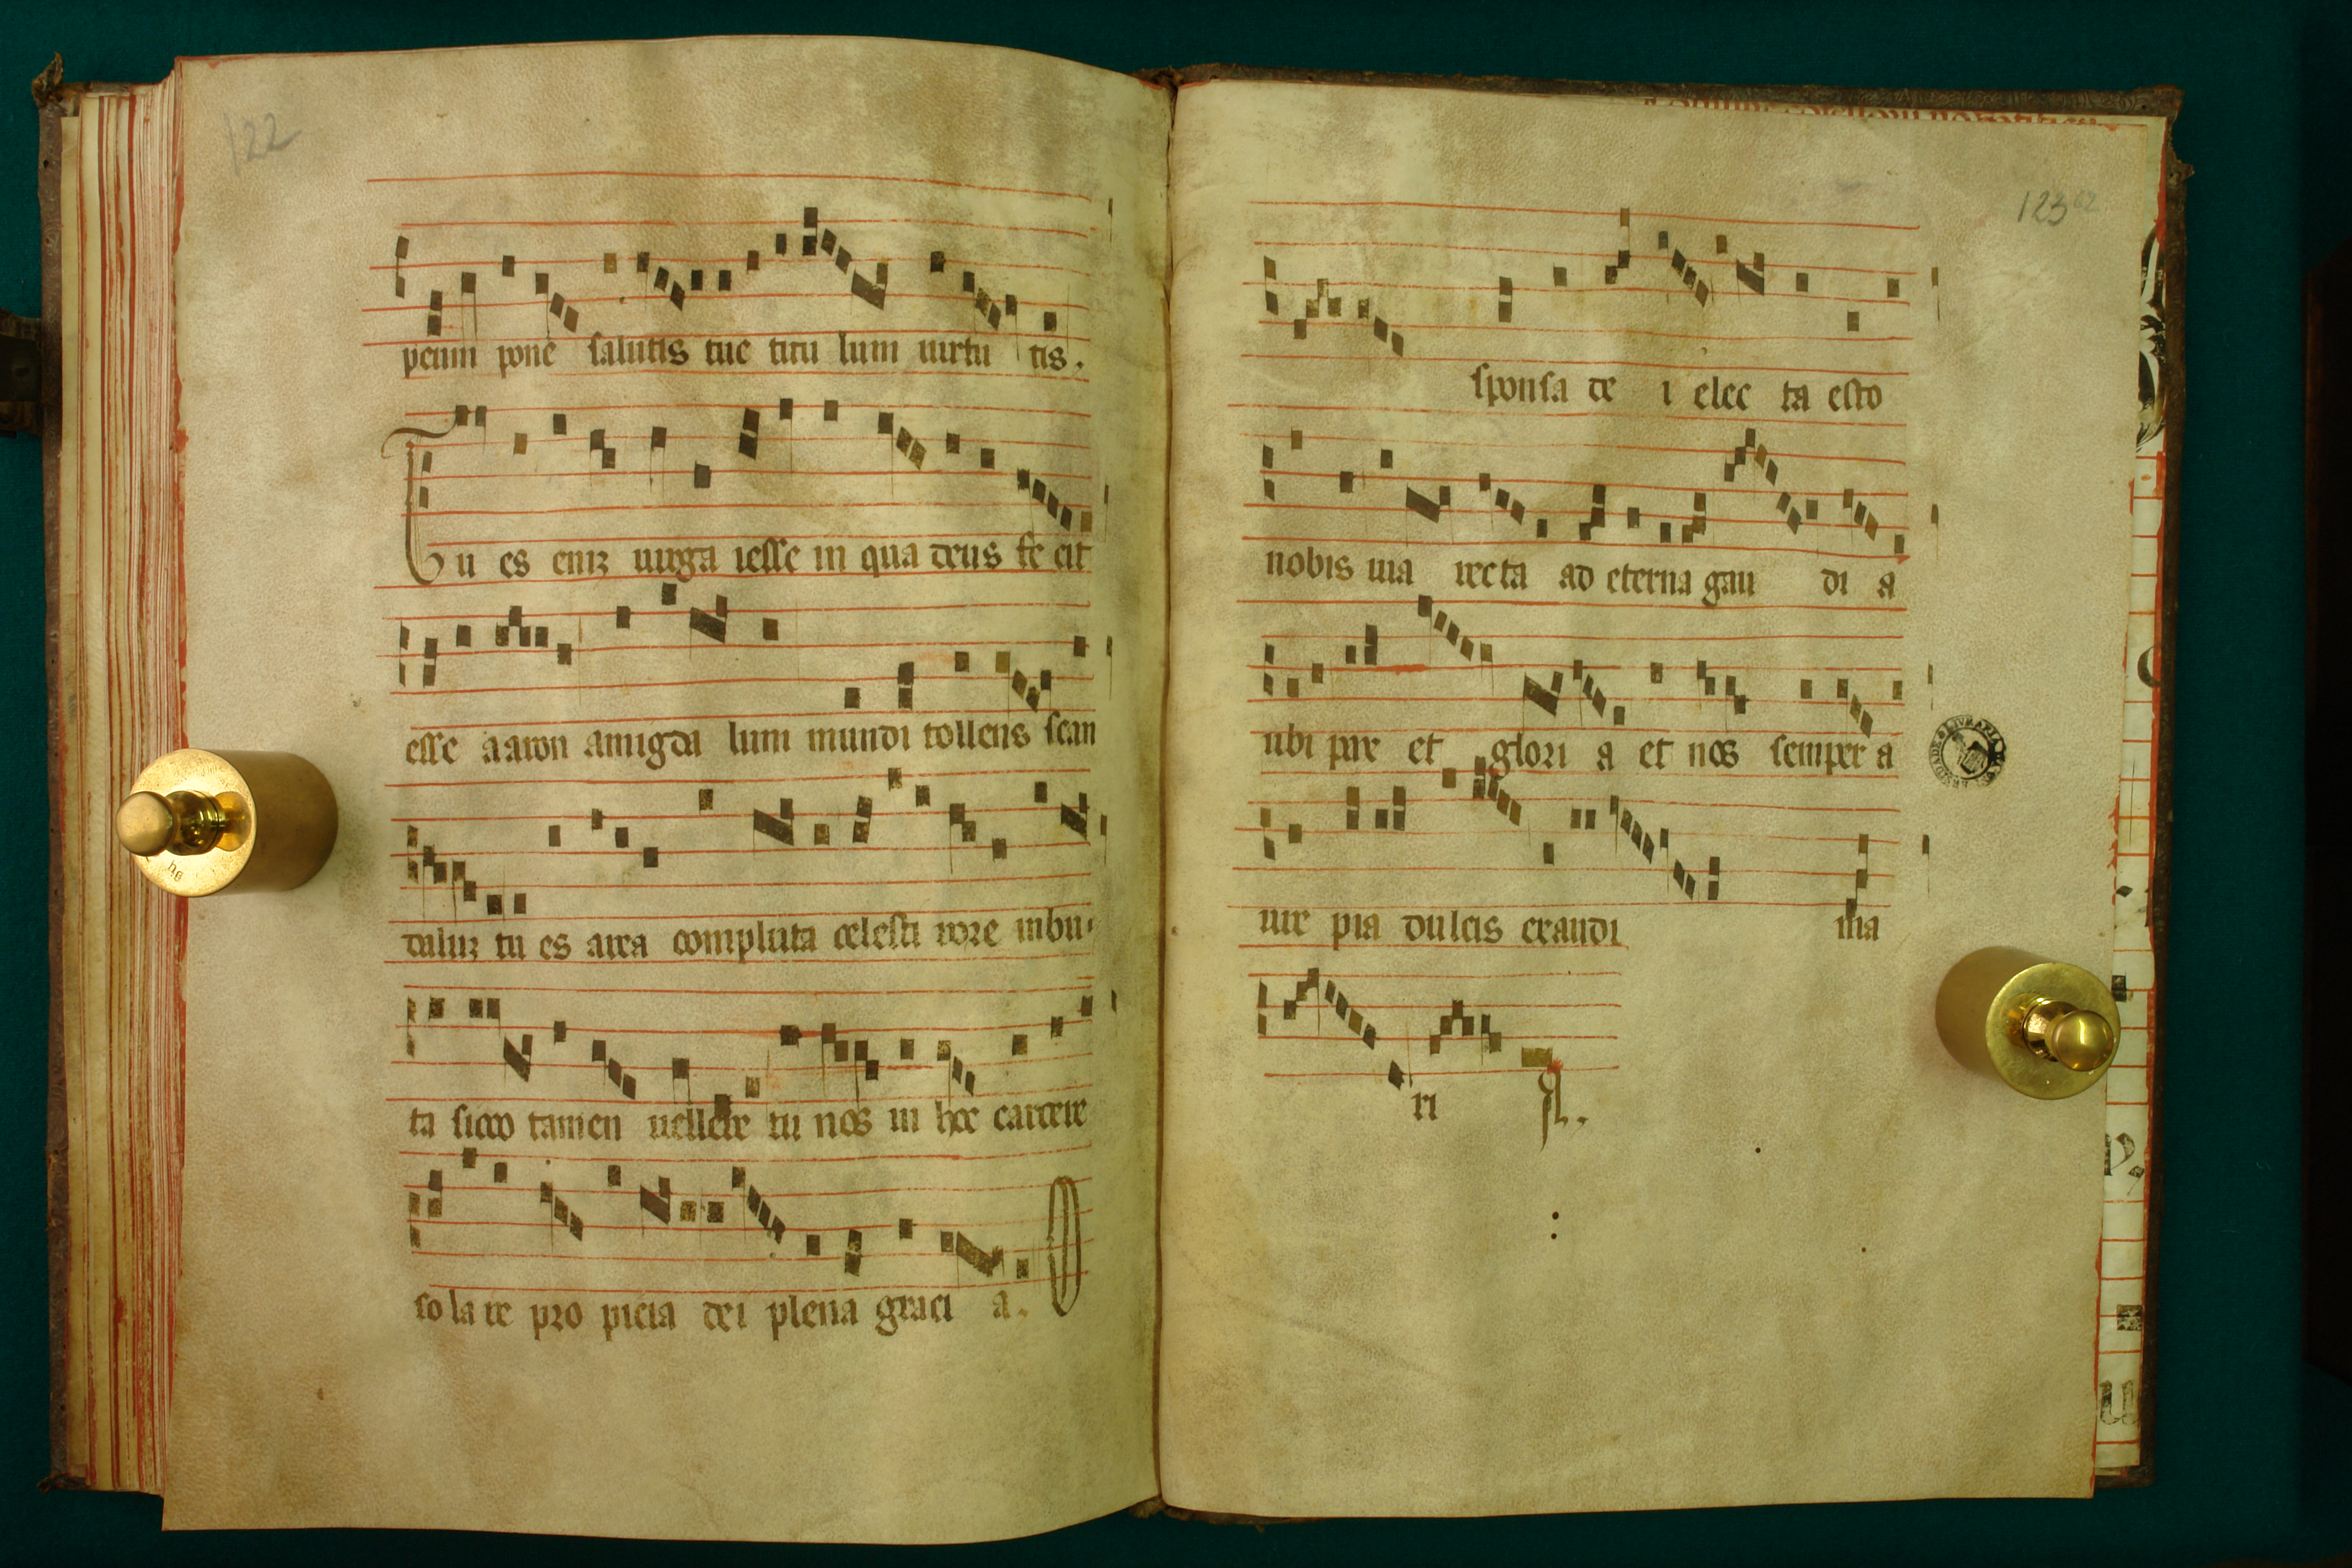 122
petim pone salutis tue titu lum uirtu tis.
Tu es eniz uirga iesse in qua deus fe cit
esse aaron amigda lum mundi tollens scan
daluz tu es area compluta celesti rore inbu
ta sicco tamen uellere tu nos in hoc carcere
so la re pro picia dei plena graci a. O
123
sponsa de i elec ta esto
nobis uia recta ad eterna gau di a
ubi pax et glori a et nos semper a
ure pia dulcis exaudi ma
ri